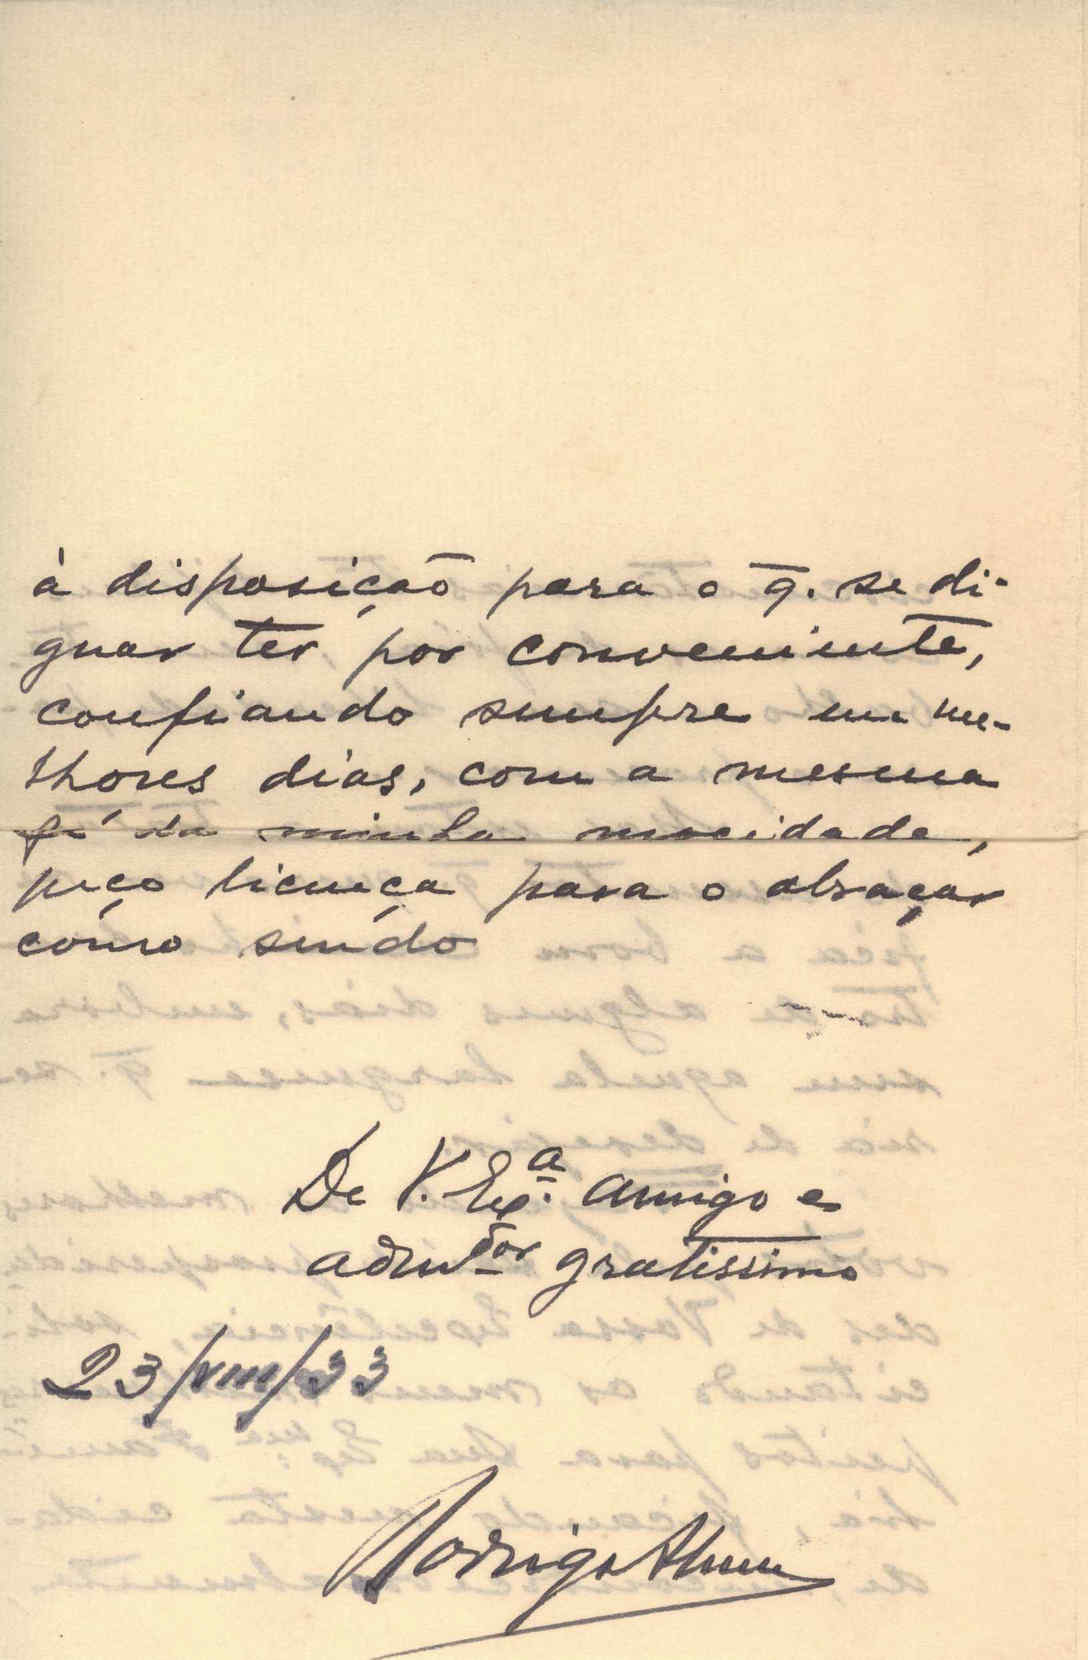 à disposição para o q̄. se di-
gnar ter por conveniente,
confiando sempre em me-
lhores dias, com a mesma
fé da minha mocidade,
peço licença para o abraçar
cómo sendo
De V. Exª. amigo e
admdor gratissimo
23/VIII/33
Rodrigo